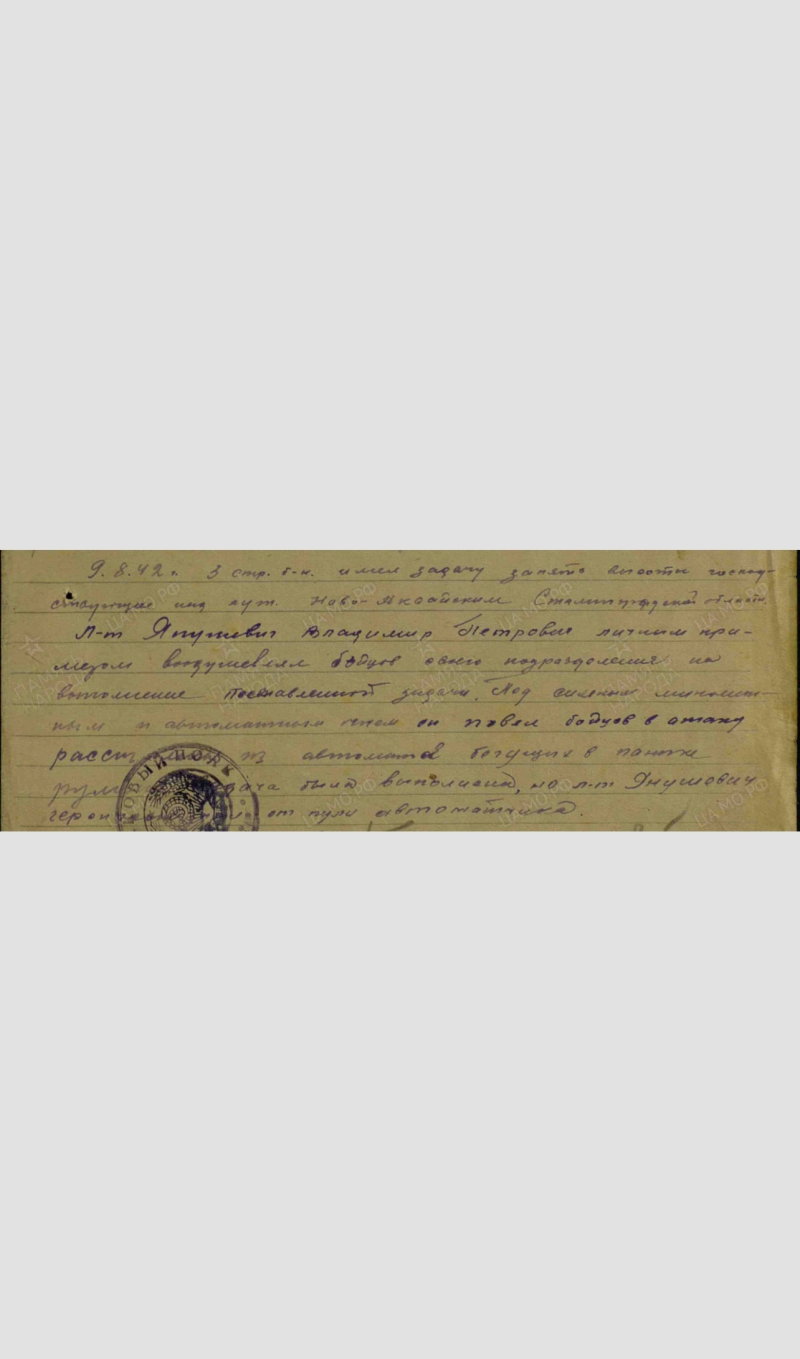 9.8.42 г. 3 стр. б-н. имел задачу занять высоты господ-
ствующие над хут. Ново-Аксайским Сталинградской области.
Л-т Янушевич Владимир Петрович личным при-
мером воодушевлял бойцов своего подразделения на
выполнение поставленной задачи. Под сильным миномет-
ным и автоматным огнем он повел бойцов в атаку
из автомата бегущих в панике
была выполнена, но л-т Янушович
от пули автоматчика.
ОВЫЙ ПОЛК
ЦАМО.РФ